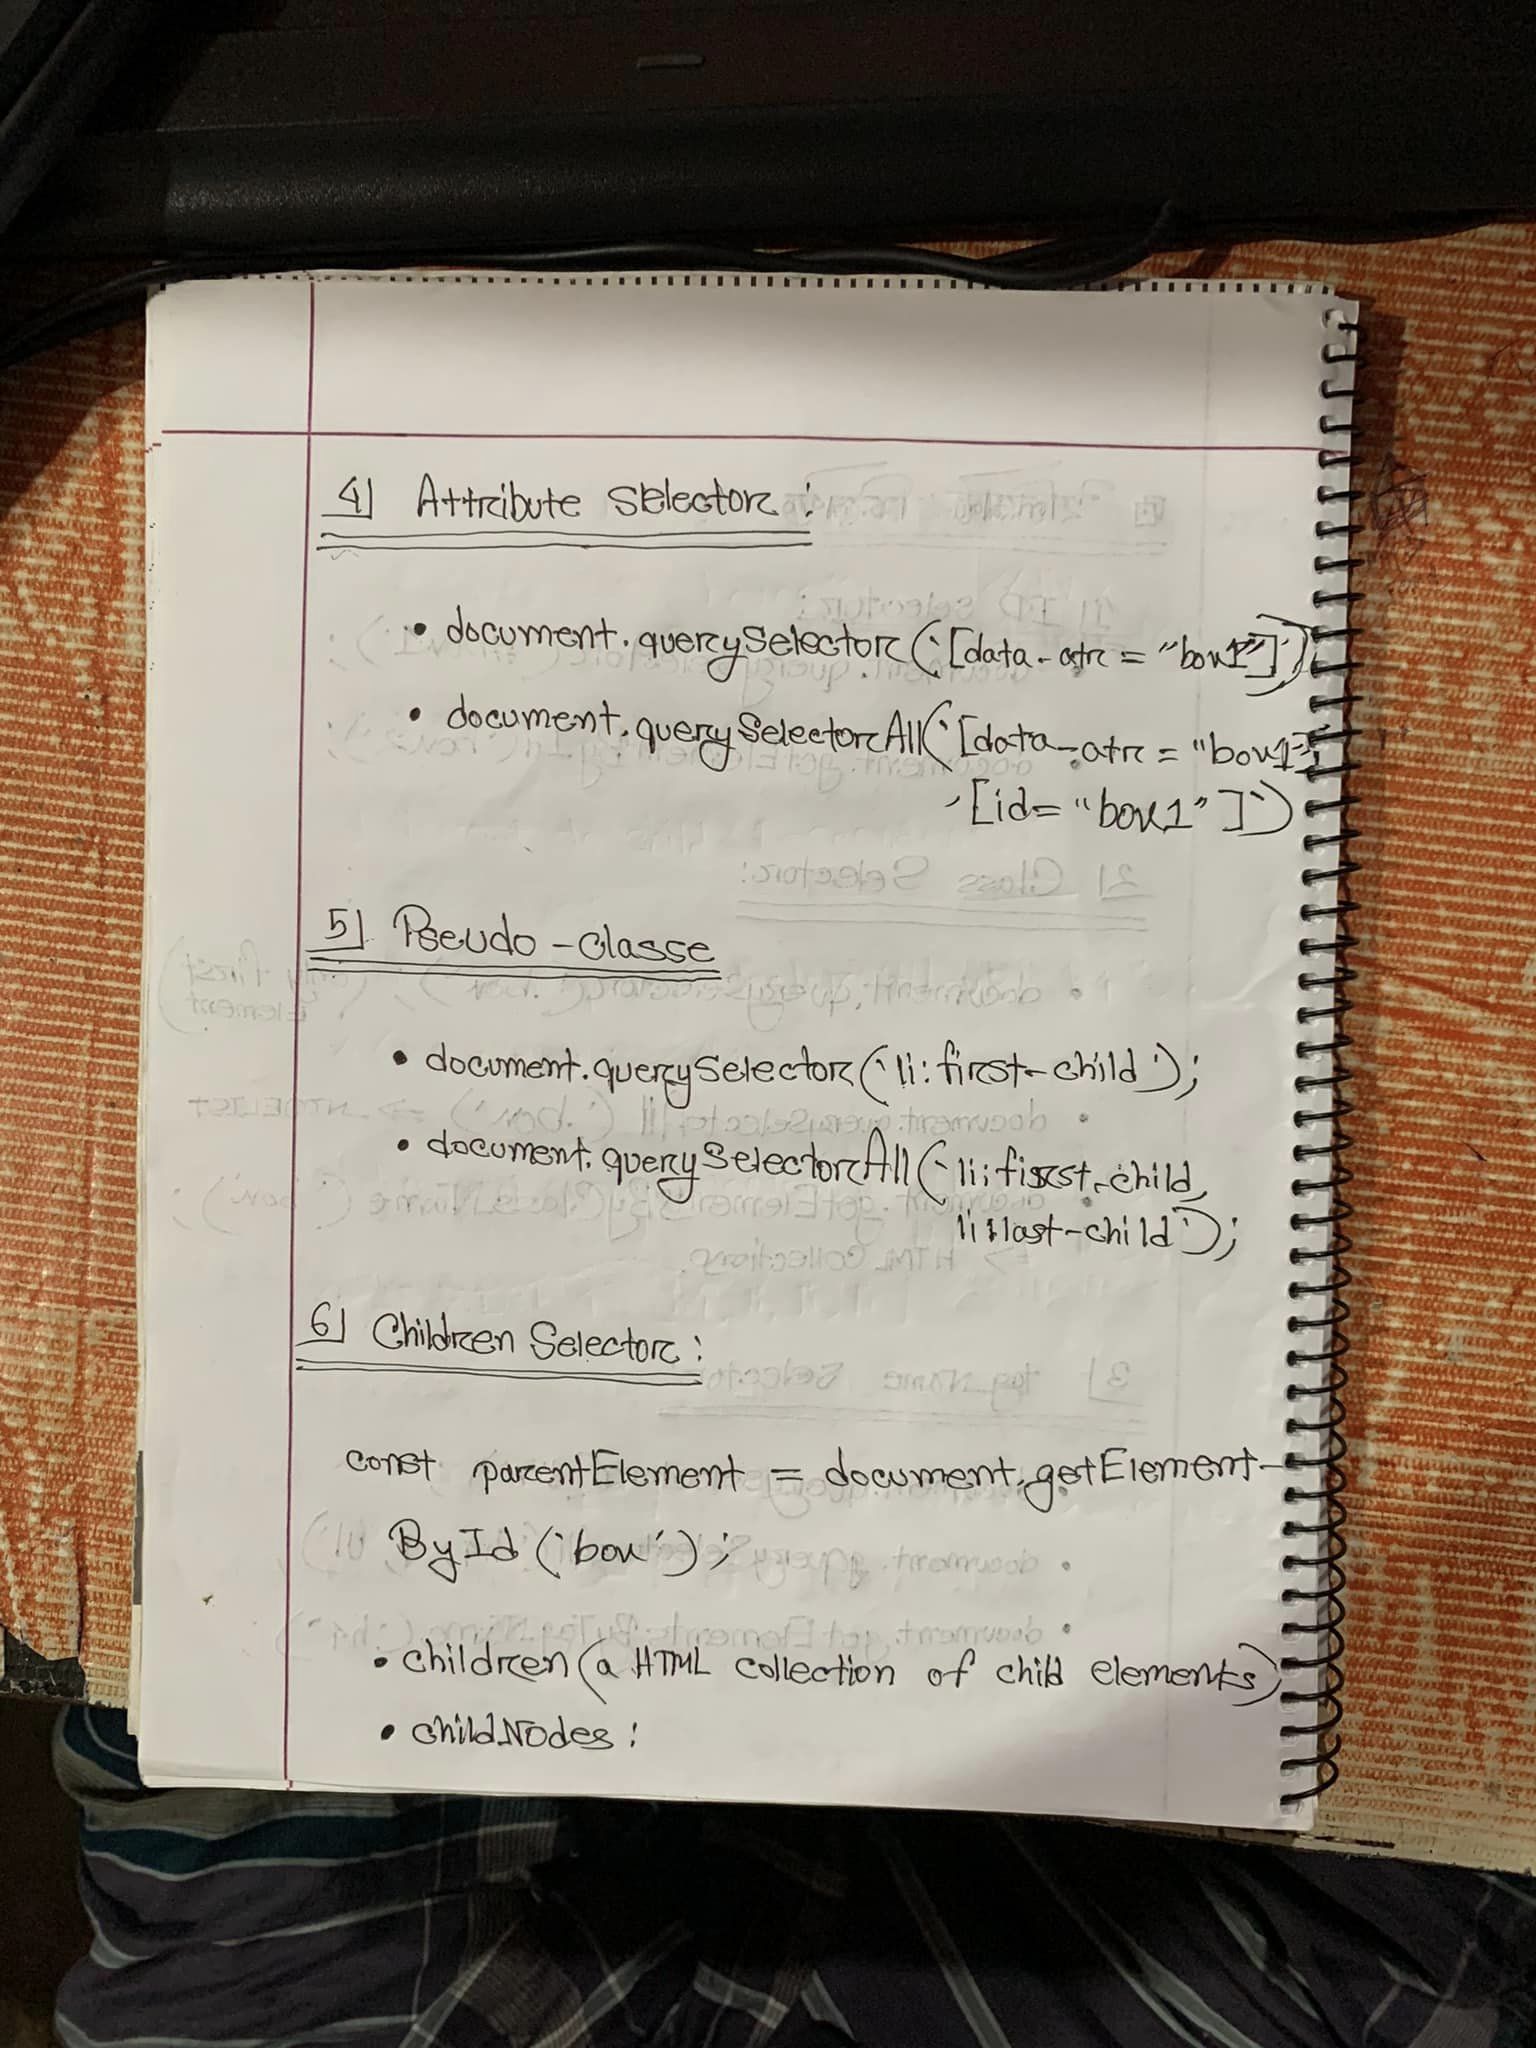 4] Attribute Selector :
• document.querySelector('[data-atr = "box1"]');
• document.querySelectorAll('[data-atr = "box1"],
[id= "box1"]')
5] Pseudo-classe
• document.querySelector('li:first-child');
• document.querySelectorAll('li:first-child,
li:last-child');
6] Children Selector :
const parentElement = document.getElement-
ById('box');
• children (a HTML collection of child elements)
• childNodes :